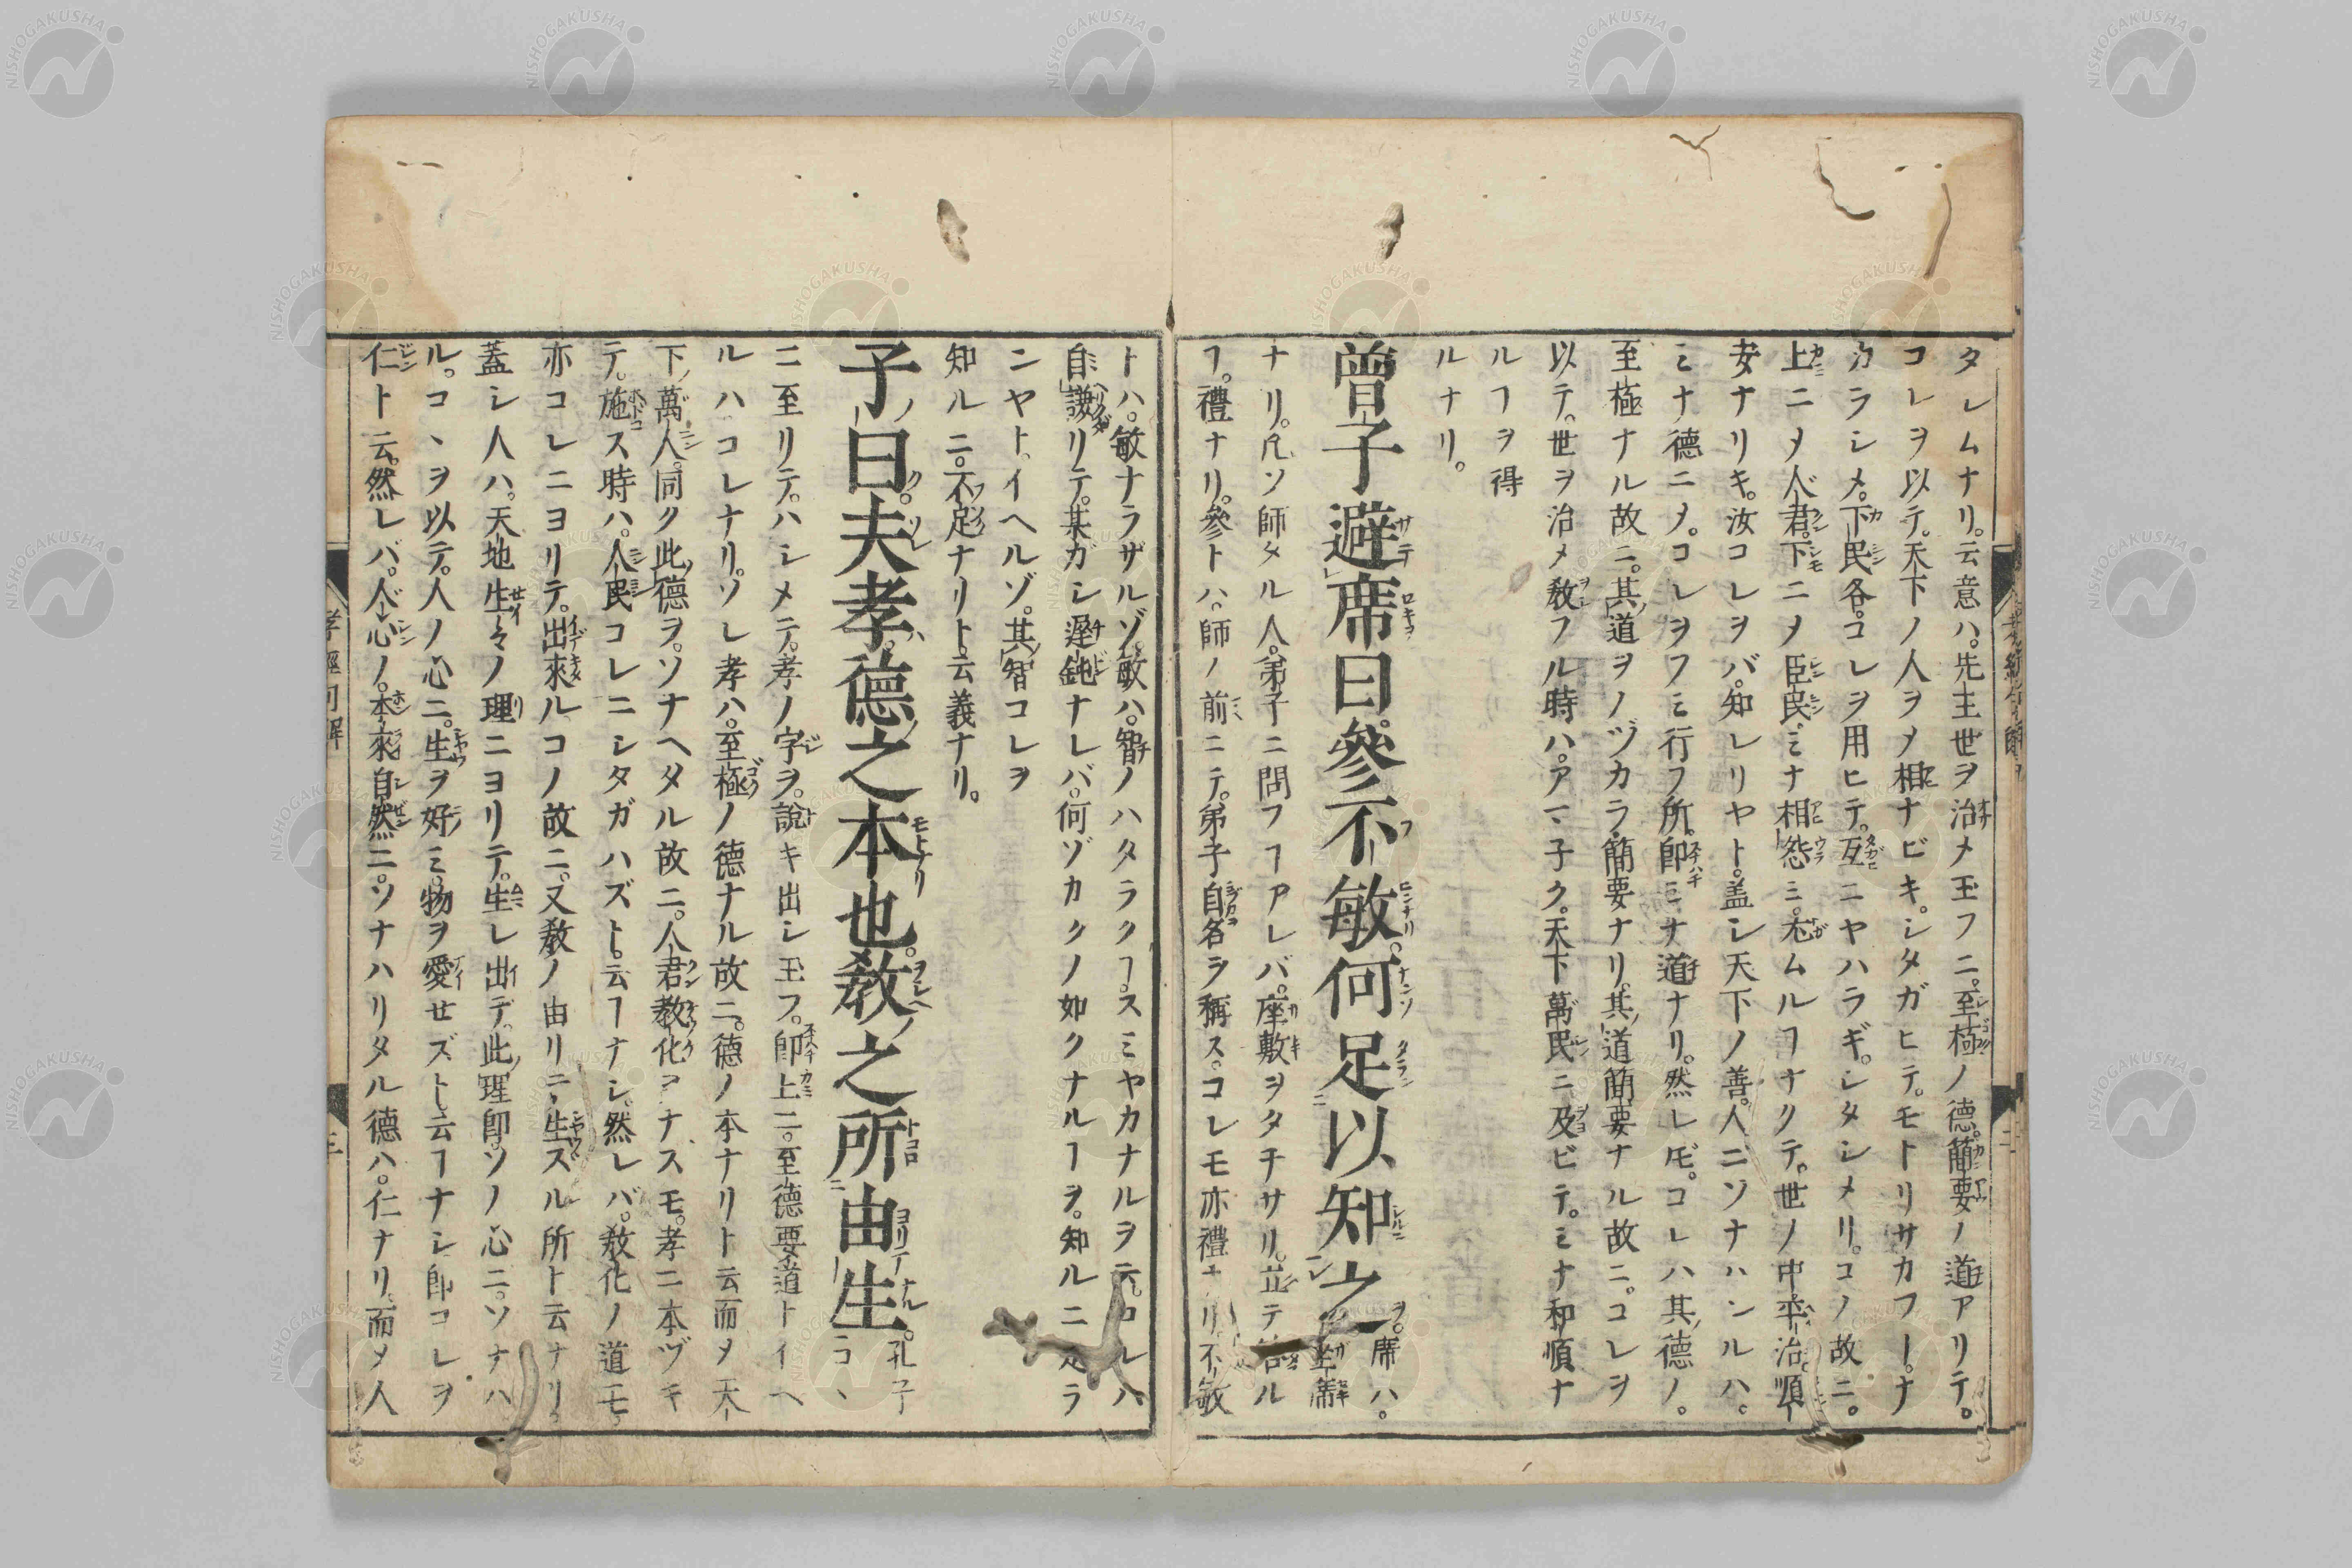 タレムナリ。云意ハ。先王世ヲ治メ玉フニ。至極ノ德。簡要ノ道アリテ。
コレヲ以テ。天下ノ人ヲメ相ナビキ。シタガヒテ。モトリサカフヿ。ナ
カラシメ。下民各。コレヲ用ヒテ。互ニヤハラギ。シタシメリ。コノ故ニ。
上ニメ人君。下ニメ臣民。ミナ相怨ミ。尤ムルヿナクテ。世ノ中平治。順
安ナリキ。汝コレヲバ。知レリヤト。盖シ天下ノ善。人ニソナハンルハ。
ミナ德ニメ。コレヲフミ行フ所。卽ミナ道ナリ。然レ𪜈。コレハ其德ノ。
至極ナル故ニ。其道ヲノヅカラ簡要ナリ。其道簡要ナル故ニ。コレヲ
以テ。世ヲ治メ敎フル時ハ。アマ子ク。天下萬民ニ及ビテ。ミナ和順ナ
ルヿヲ得
ルナリ。
曾子避席曰參不敏何足以知之 席ハ。坐席
ナリ。凡ソ師タル人。弟子ニ問フヿアレバ。座敷ヲタチサリ。立テ答ル
ヿ。禮ナリ。參トハ。師ノ前ニテ。弟子自名ヲ稱ス。コレモ亦禮ナリ。不敏
トハ。敏ナラザルゾ。敏ハ。智ノハタラクヿ。スミヤカナルヲ云。コレハ
自謙リテ。某ガシ遲鈍ナレバ。何ゾカクノ如クナルヿヲ。知ルニ足ラ
ンヤト。イヘルゾ。其智コレヲ
知ルニ。不足ナリト。云義ナリ。
子曰。夫孝。德之本也。敎之所由生。 孔子コヽ
ニ至リテ。ハシメテ。孝ノ字ヲ。說キ出シ玉フ。卽上ニ。至德要道トイヘ
ルハコレナリ。ソレ孝ハ。至極ノ德ナル故ニ。德ノ本ナリト云而メ天
下ノ萬人。同ク此德ヲ。ソナヘタル故ニ。人君敎化ヲナスモ。孝ニ本ヅキ
テ。施ス時ハ。人民コレニシタガハズト。云ヿナシ。然レバ。敎化ノ道モ
亦コレニヨリテ。出來ルコノ故ニ。又敎ノ由リニ生スル所ト云ナリ。
蓋シ人ハ。天地生々ノ理ニヨリテ。生レ出デ。此理卽。ソノ心ニ。ソナハ
ル。コヽヲ以テ。人ノ心ニ。生ヲ好ミ。物ヲ愛セズト。云ヿナシ卽コレヲ
仁ト云。然レバ。人心ノ。本來自然ニ。ソナハリタル德ハ。仁ナリ。而メ人
孝經句解
三